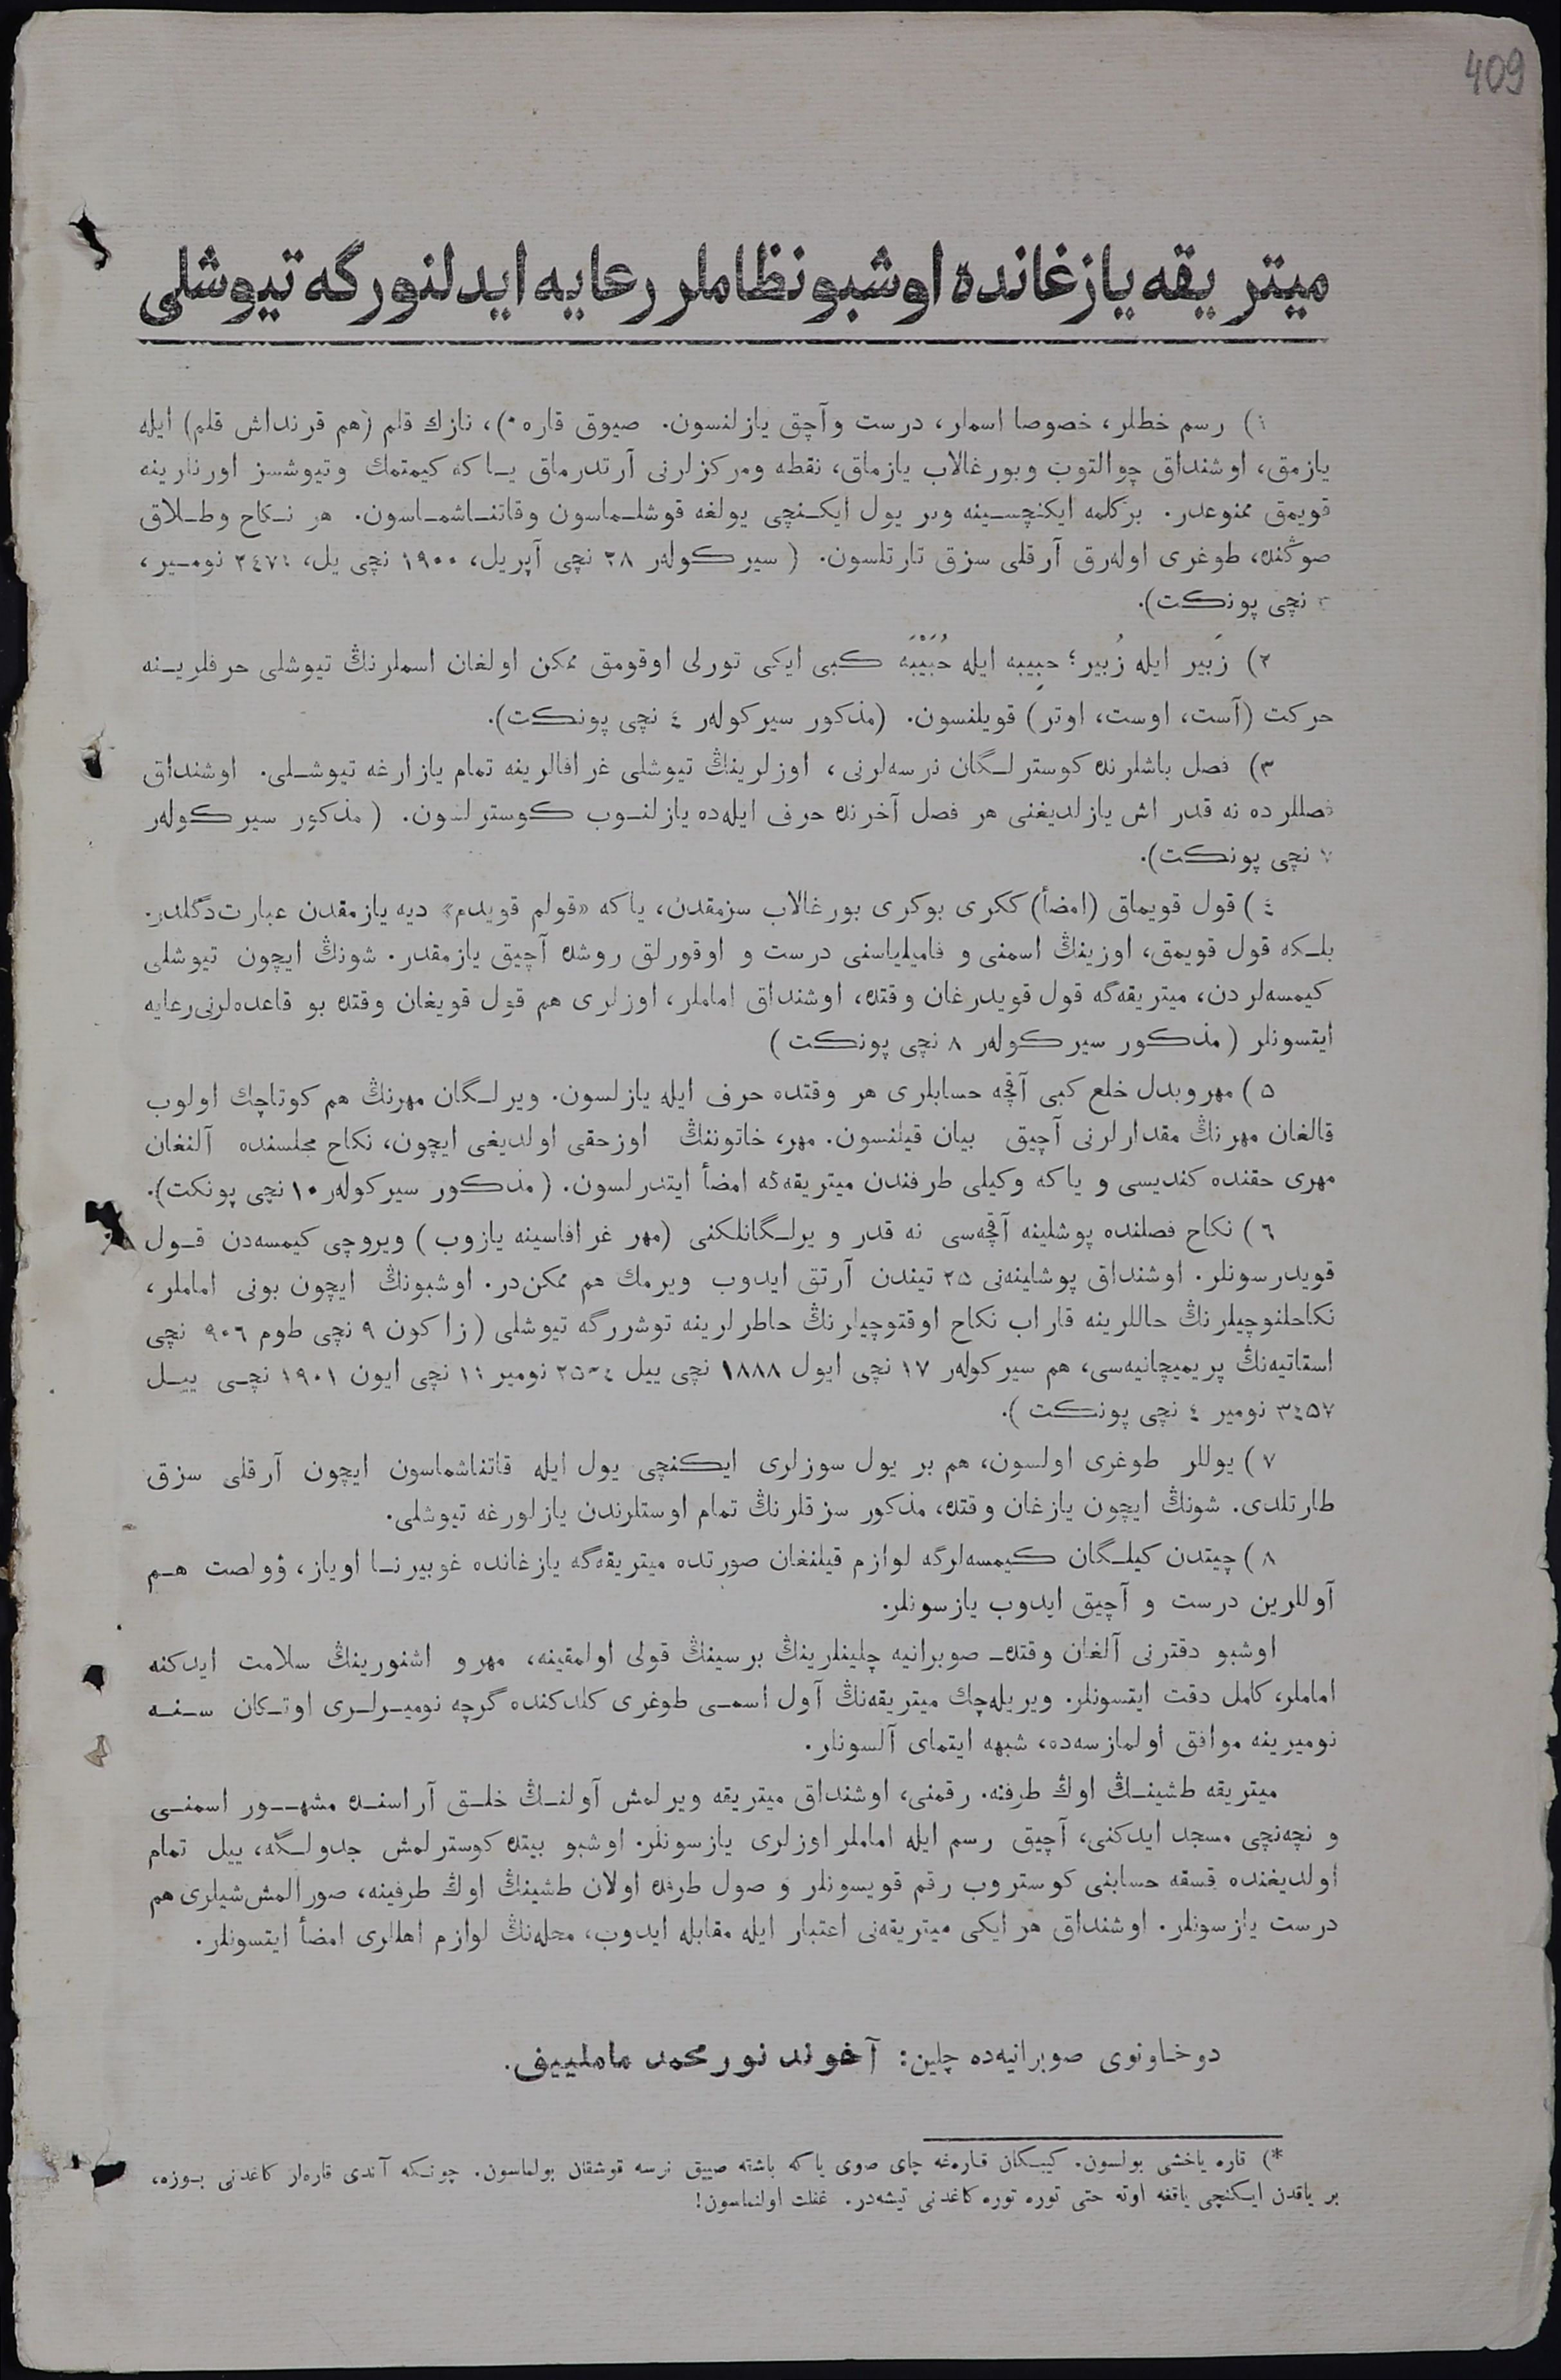 409
ميتريقه يازغانده اوشبو نظاملر رعايه ايدلنورگه تيوشلى
١) رسم خطلر، خصوصا اسملر، درست وآچق يازلنسون. صيوق قاره *)، نازك قلم (هم قرنداش قلم) ايله
يازمق، اوشنداق چوالتوب وبورغالاب يازماق، نقطه ومركزلرنى آرتدرماق ياكه كيمتمك وتيوشسز اورنلرينه
قويمق ممنوعدر. بركلمه ايكنچسينه وبر يول ايكنچى يولغه قوشلماسون وقاتناشماسون. هر نكاح وطلاق
صوڭنده، طوغرى اولەرق آرقلى سزق تارتلسون. (سيركولەر ٢٨ نچى آپريل، ١٩٠٠ نچى يل، ٢٤٧١ نومير،
٣ نچى پونكت).
٢) زَبير ايله زُبير؛ حبِيبه ايله حُبَيْبَه كبى ايكى تورلى اوقومق ممكن اولغان اسملرنڭ تيوشلى حرفلرينه
حركت (آست، اوست، اوتر) قويلنسون. (مذكور سيركولەر ٤ نچى پونكت).
٣) فصل باشلرنده كوسترلگان نرسەلرنى، اوزلرينڭ تيوشلى غرافالرينه تمام يازارغه تيوشلى. اوشنداق
فصللرده نه قدر اش يازلديغنى هر فصل آخرنده حرف ايلەده يازلنوب كوسترلسون. (مذكور سيركولەر
٧ نچى پونكت).
٤) قول قويماق (امضأ) ككرى بوكرى بورغالاب سزمقدن، ياكه «قولم قويدم» ديه يازمقدن عبارت دگلدر.
بلكه قول قويمق، اوزينڭ اسمنى و فاميلياسنى درست و اوقورلق روشده آچيق يازمقدر. شونڭ ايچون تيوشلى
كيمسەلردن، ميتريقەگه قول قويدرغان وقتده، اوشنداق اماملر، اوزلرى هم قول قويغان وقتده بو قاعدەلرنى رعايه
ايتسونلر (مذكور سيركولەر ٨ نچى پونكت)
۵) مهر وبدل خلع كبى آقچه حسابلرى هر وقتده حرف ايله يازلسون. ويرلگان مهرنڭ هم كوتاچك اولوب
قالغان مهرنڭ مقدارلرنى آچيق بيان قيلنسون. مهر، خاتوننڭ اوزحقى اولديغى ايچون، نكاح مجلسنده آلنغان
مهرى حقنده كنديسى و ياكه وكيلى طرفندن ميتريقەگه امضأ ايتدرلسون. (مذكور سيركولەر ١٠ نچى پونكت).
٦) نكاح فصلنده پوشلينه آقچەسى نه قدر ويرلگانلكنى (مهر غرافاسينه يازوب) ويروچى كيمسەدن قول
قويدرسونلر. اوشنداق پوشلينەنى ٢۵ تيندن آرتق ايدوب ويرمك هم ممكن در. اوشبونڭ ايچون بونى اماملر،
نكاحلنوچيلرنڭ حاللرينه قاراب نكاح اوقتوچيلرنڭ خاطرلرينه توشررگه تيوشلى (زاكون ٩ نچى طوم ٩٠٦ نچى
استاتيەنڭ پريميچانيەسى، هم سيركولەر ١٧ نچى ايول ١٨٨٨ نچى ييل نومير ١١ نچى ايون ١٩٠١ نچى ييل
٣٤۵٧ نومير ٤ نچى پونكت).
٧) يوللر طوغرى اولسون، هم بر يول سوزلرى ايكنچى يول ايله قاتناشماسون ايچون آرقلى سزق
طارتلدى. شونڭ ايچون يازغان وقتده، مذكور سزقلرنڭ تمام اوستلرندن يازلورغه تيوشلى.
٨) چيتدن كيلگان كيمسەلرگه لوازم قيلنغان صورتده ميتريقەگه يازغانده غوبيرنا اوياز، وولصت هم
آوللرين درست و آچيق ايدوب يازسونلر.
اوشبو دفترنى آلغان وقتده صوبرانيه چلينلرينڭ برسينڭ قولى اولمقينه، مهر و اشنورينڭ سلامت ايدكنه
اماملر، كامل دقت ايتسونلر. ويريلەچك ميتريقەنڭ آول اسمى طوغرى كلدكنده گرچه نوميرلرى اوتكان سنه
نوميرينه موافق اولمازسەده، شبهه ايتماى آلسونلر.
ميتريقه طشينڭ اوڭ طرفنه. رقمنى، اوشنداق ميتريقه ويرلمش آولنڭ خلق آراسنده مشهور اسمنى
و نچەنچى مسجد ايدكنى، آچيق رسم ايله اماملر اوزلرى يازسونلر. اوشبو بيتده كوسترلمش جدولگه، ييل تمام
اولديغنده قسقه حسابنى كوستروب رقم قويسونلر و صول طرفده اولان طشينڭ اوڭ طرفينه، صورالمش شيلرى هم
درست يازسونلر. اوشنداق هر ايكى ميتريقەنى اعتبار ايله مقابله ايدوب، محلەنڭ لوازم اهللرى امضأ ايتسونلر.
دوخاونوى صوبرانيەده چلين: آخوند نورمحمد ماملييف.
*) قاره ياخشى بولسون. كيبكان قارەغه چاى صوى ياكه باشته صييق نرسه قوشقان بولماسون. چونكه آندى قارەلر كاغدنى بوزه،
بر ياقدن ايكنچى ياقغه اوته حتى توره توره كاغدنى تيشەدر. غفلت اولنماسون!